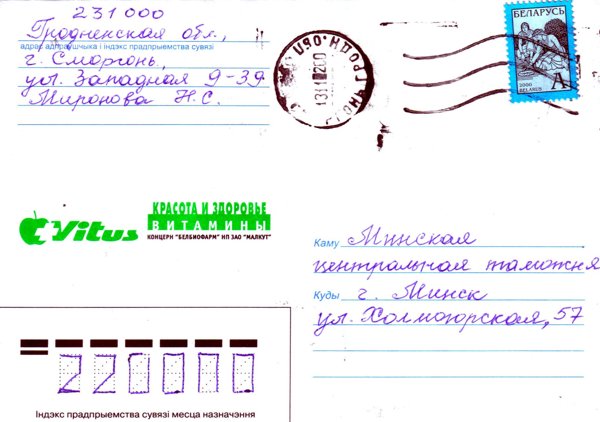 231000
Гродненская обл.,
адрас адпраўшчыка і індэкс прадпрыемства сувязі
г. Сморгонь,
ул. Западная 9-39
Миронова Н.С.
БЕЛАРУСЬ
А
2000
BELARUS
Vitus
КРАСОТА И ЗДОРОВЬЕ
ВИТАМИНЫ
КОНЦЕРН "БЕЛБИОФАРМ" ИП ЗАО "МАЛКУТ"
Каму Минская
центральная таможня
Куды г. Минск
ул. Холмогорская, 57
220000
Індэкс прадпрыемства сувязі месца назначэння